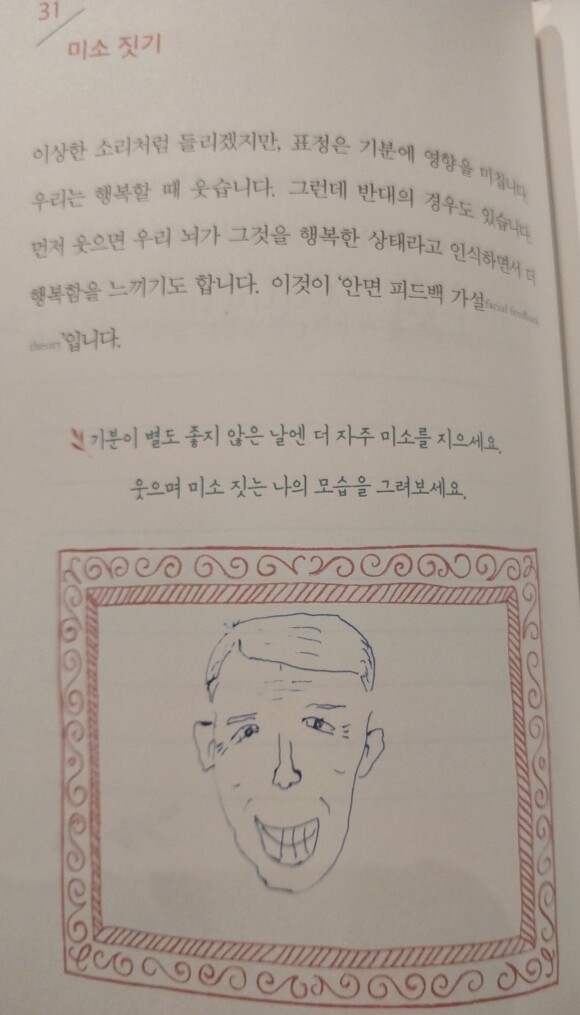 31
미소 짓기
이상한 소리처럼 들리겠지만, 표정은 기분에 영향을 미칩니다.
우리는 행복할 때 웃습니다. 그런데 반대의 경우도 있습니다.
먼저 웃으면 우리 뇌가 그것을 행복한 상태라고 인식하면서 더
행복함을 느끼기도 합니다. 이것이 ‘안면 피드백 가설facial feedback
theory’입니다.
기분이 별도 좋지 않은 날엔 더 자주 미소를 지으세요.
웃으며 미소 짓는 나의 모습을 그려보세요.